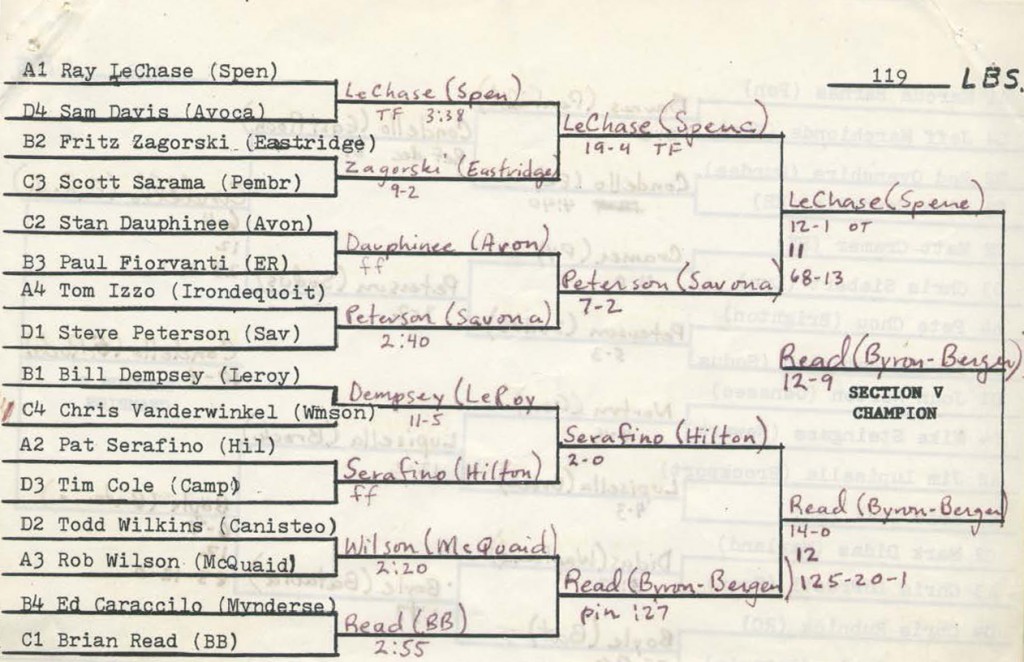 119 LBS.
A1 Ray LeChase (Spen)
D4 Sam Davis (Avoca)
B2 Fritz Zagorski (Eastridge)
C3 Scott Sarama (Pembr)
C2 Stan Dauphinee (Avon)
B3 Paul Fiorvanti (ER)
A4 Tom Izzo (Irondequoit)
D1 Steve Peterson (Sav)
B1 Bill Dempsey (Leroy)
C4 Chris Vanderwinkel (Wmson)
A2 Pat Serafino (Hil)
D3 Tim Cole (Camp)
D2 Todd Wilkins (Canisteo)
A3 Rob Wilson (McQuaid)
B4 Ed Caraccilo (Mynderse)
C1 Brian Read (BB)
LeChase (Spen)
TF 3:38
Zagorski (Eastridge)
9-2
Dauphinee (Avon)
ff
Peterson (Savona)
2:40
Dempsey (LeRoy
11-5
Serafino (Hilton)
ff
Wilson (McQuaid)
2:20
Read (BB)
2:55
LeChase (Spenc)
19-4 TF
Peterson (Savona)
7-2
Serafino (Hilton)
2-0
Read (Byron-Bergen)
pin :27
LeChase (Spene)
12-1 OT
11
68-13
Read (Byron-Bergen)
14-0
12
125-20-1
Read (Byron-Bergen)
12-9
SECTION V
CHAMPION